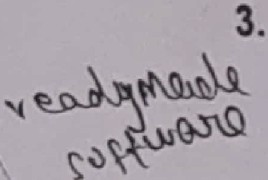 3.
readymade
software